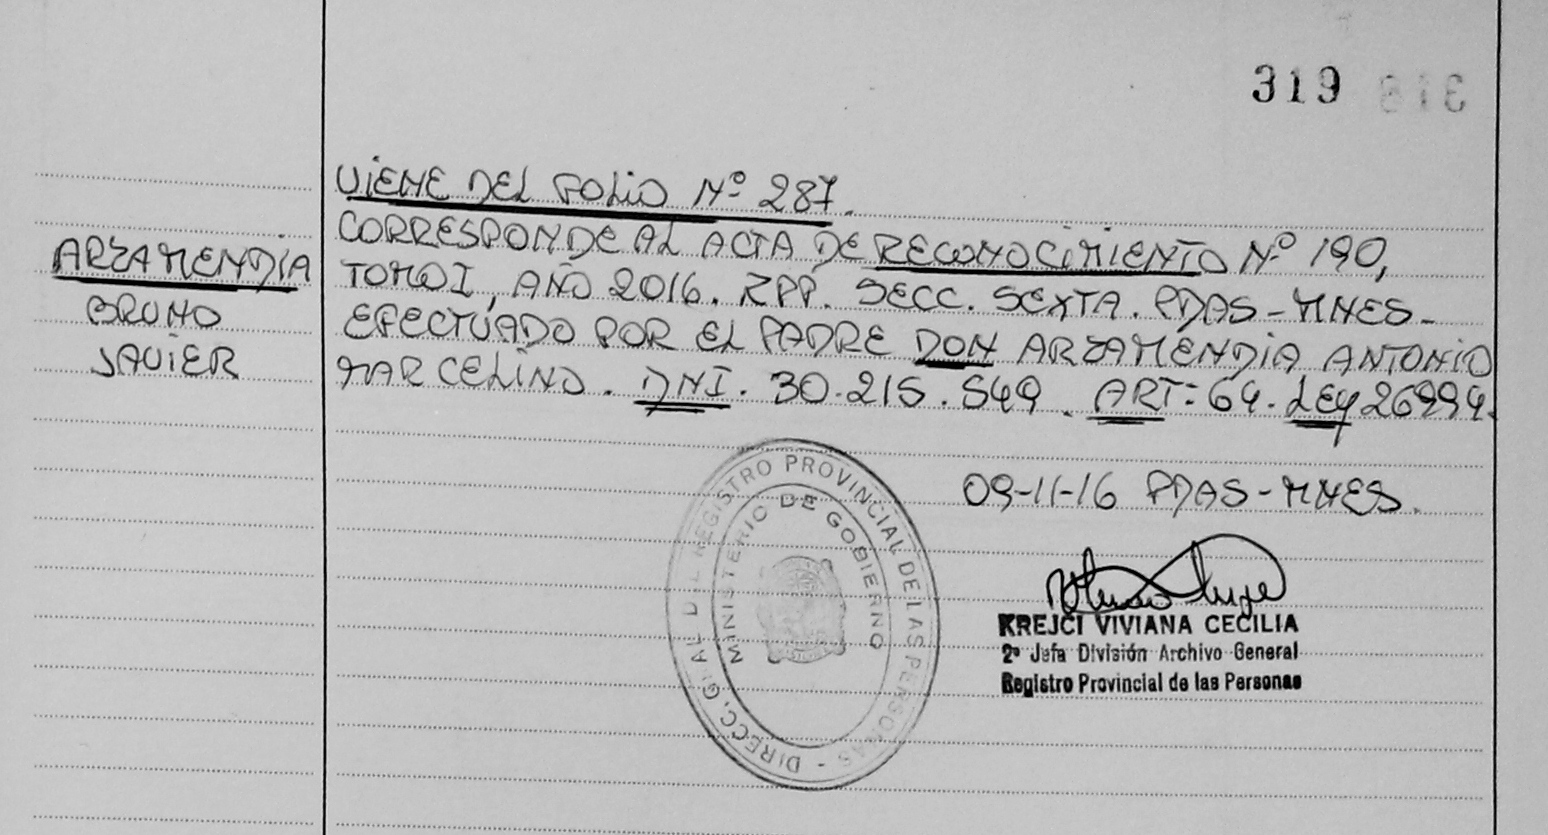 319
VIENE DEL FOLIO Nº 287.
CORRESPONDE AL ACTA DE RECONOCIMIENTO Nº 190,
ARZAMENDIA
BRUNO
JAVIER
TOMO I, AÑO 2016. RPP. SECC. SEXTA. PDAS-MNES-
EFECTUADO POR EL PADRE DON ARZAMENDIA ANTONIO
MARCELINO. DNI. 30.215.549. ART: 64. LEY 26994.
09-11-16 PDAS-MNES.
DIRECC. GRAL DE REGISTRO PROVINCIAL DE LAS PERSONAS -
MINISTERIO DE GOBIERNO
KREJCI VIVIANA CECILIA
2º Jefa División Archivo General
Registro Provincial de las Personas